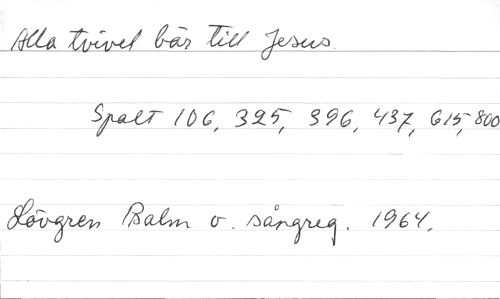 Alla tvivel bär till Jesus.
Spalt 106, 325, 396, 437, 615, 800
Lövgren Psalm o. sångreg. 1964.